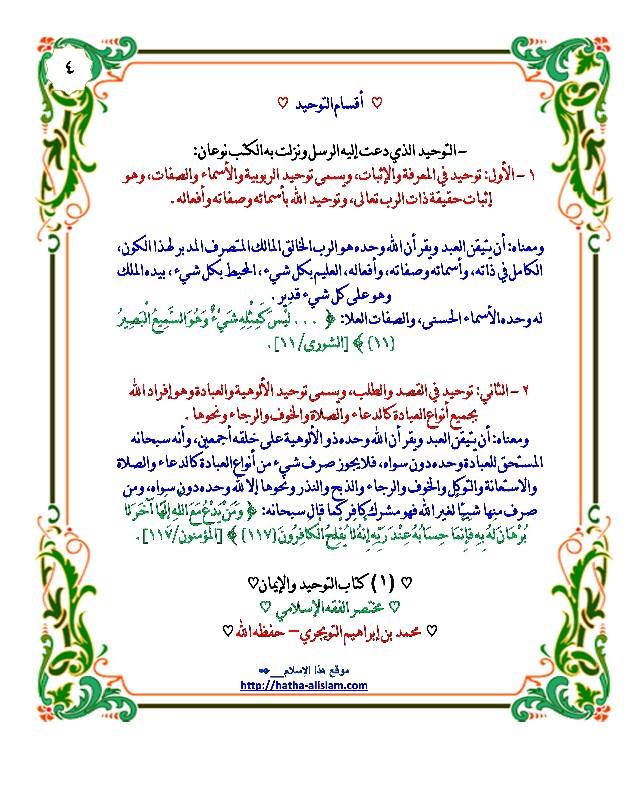 ٤
♡ أقسام التوحيد ♡
- التوحيد الذي دعت إليه الرسل ونزلت به الكتب نوعان:
١ - الأول: توحيد في المعرفة والإثبات، ويسمى توحيد الربوبية والأسماء والصفات، وهو
إثبات حقيقة ذات الرب تعالى، وتوحيد الله بأسمائه وصفاته وأفعاله.
ومعناه: أن يتيقن العبد ويقر أن الله وحده هو الرب الخالق المالك المتصرف المدبر لهذا الكون،
الكامل في ذاته، وأسمائه وصفاته، وأفعاله، العليم بكل شيء، المحيط بكل شيء، بيده الملك
وهو على كل شيء قدير.
له وحده الأسماء الحسنى، والصفات العلا: ﴿ ... لَيْسَ كَمِثْلِهِ شَيْءٌ وَهُوَ السَّمِيعُ الْبَصِيرُ
(١١) ﴾ [الشورى/١١].
٢ - الثاني: توحيد في القصد والطلب، ويسمى توحيد الألوهية والعبادة وهو إفراد الله
بجميع أنواع العبادة كالدعاء والصلاة والخوف والرجاء ونحوها.
ومعناه: أن يتيقن العبد ويقر أن الله وحده ذو الألوهية على خلقه أجمعين، وأنه سبحانه
المستحق للعبادة وحده دون سواه، فلا يجوز صرف شيء من أنواع العبادة كالدعاء والصلاة
والاستعانة والتوكل والخوف والرجاء والذبح والنذر ونحوها إلا لله وحده دون سواه، ومن
صرف منها شيئًا لغير الله فهو مشرك كافر كما قال سبحانه: ﴿ وَمَنْ يَدْعُ مَعَ اللَّهِ إِلَهًا آخَرَ لَا
بُرْهَانَ لَهُ بِهِ فَإِنَّمَا حِسَابُهُ عِنْدَ رَبِّهِ إِنَّهُ لَا يُفْلِحُ الْكَافِرُونَ (١١٧) ﴾ [المؤمنون/١١٧].
♡ (١) كتاب التوحيد والإيمان♡
♡ مختصر الفقه الإسلامي ♡
♡ محمد بن إبراهيم التويجري – حفظه الله♡
موقع هذا الإسلام__➡
http://hatha-alislam.com